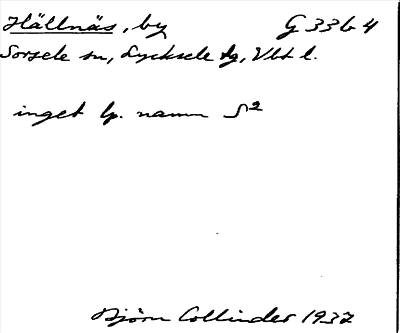 Hällnäs, by G 33 b 4
Sorsele sn, Lycksele tg, Vbt l.
inget lp. namn S²
Björn Collinder 1937